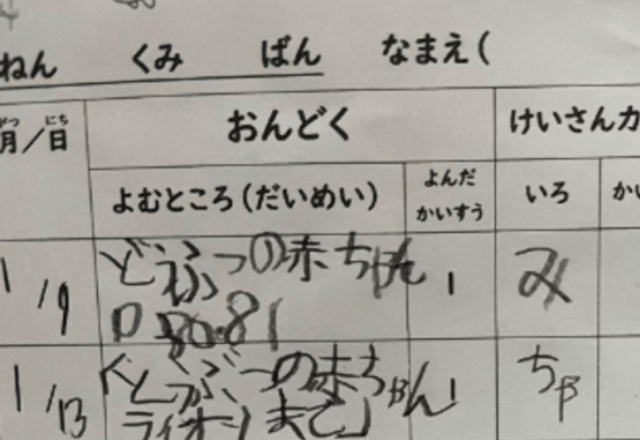 ねん くみ ばん なまえ(
がつ にち
月/日 おんどく けいさんカ
よむところ(だいめい) よんだかいすう いろ かい
1/9 どぶつの赤ちゃん 1 み
P80.81
1/13 どぶつの赤ちゃん 1 ちゃ
ライオンまで」